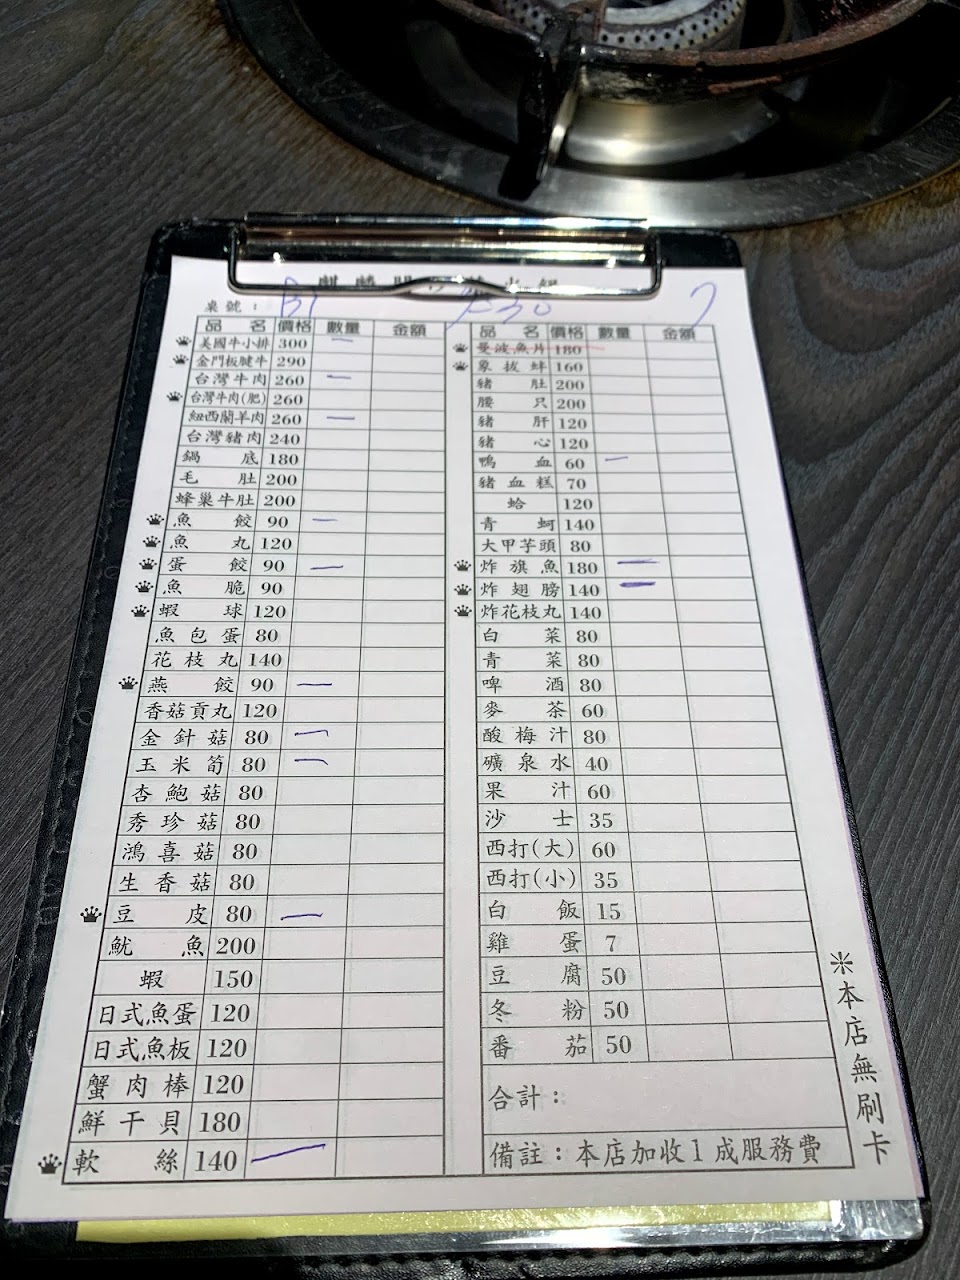 桌號： B1
品名 價格 數量 金額
美國牛小排 300 一
金門板腱牛 290
台灣牛肉 260 一
台灣牛肉(肥) 260
紐西蘭羊肉 260 一
台灣豬肉 240
鍋底 180
毛肚 200
蜂巢牛肚 200
魚餃 90 一
魚丸 120
蛋餃 90 一
魚脆 90
蝦球 120
魚包蛋 80
花枝丸 140
燕餃 90 一
香菇貢丸 120
金針菇 80 一
玉米筍 80 一
杏鮑菇 80
秀珍菇 80
鴻喜菇 80
生香菇 80
豆皮 80 一
魷魚 200
蝦 150
日式魚蛋 120
日式魚板 120
蟹肉棒 120
鮮干貝 180
軟絲 140 一
品名 價格 數量 金額
曼波魚片 180
象拔蚌 160
豬肚 200
腰只 200
豬肝 120
豬心 120
鴨血 60 一
豬血糕 70
蛤 120
青蚵 140
大甲芋頭 80
炸旗魚 180 一
炸翅膀 140 一
炸花枝丸 140
白菜 80
青菜 80
啤酒 80
麥茶 60
酸梅汁 80
礦泉水 40
果汁 60
沙士 35
西打(大) 60
西打(小) 35
白飯 15
雞蛋 7
豆腐 50
冬粉 50
番茄 50
合計：
備註：本店加收1成服務費
※本店無刷卡